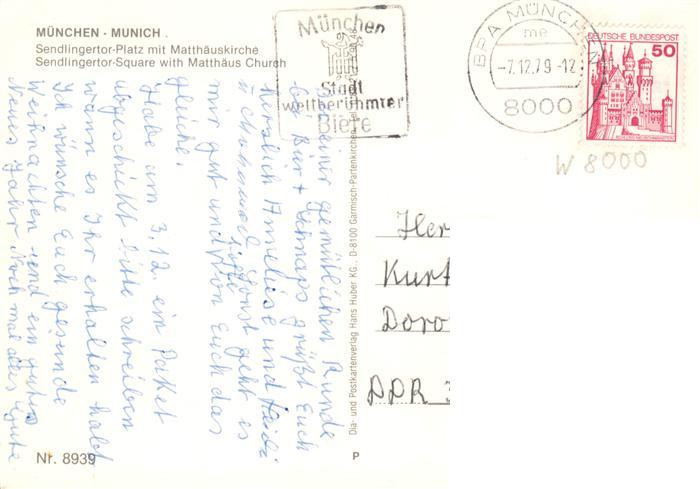 MÜNCHEN - MUNICH.
Sendlingertor-Platz mit Matthäuskirche
Sendlingertor-Square with Matthäus Church
München
Stadt
weltberühmter
Biere
BPA MÜNCHEN
me
-7.12.79-12
8000
DEUTSCHE BUNDESPOST
50
W 8000
In einer gemütlichen Runde
bei Bier + Schnaps grüßt Euch
herzlich Anneliese und Heidi
sonst geht es
mir gut und hoffe von Euch das
gleiche.
Habe am 3.12. ein Paket
abgeschickt bitte schreiben
wann es Ihr erhalten habt
Ich wünsche Euch gesunde
Weihnachten und ein gutes
Neues Jahr Nochmal alles Gute.
Her
Kurt
Doro
DDR
Dia- und Postkartenverlag Hans Huber KG., D-8100 Garmisch-Partenkirchen
Nr. 8939
P